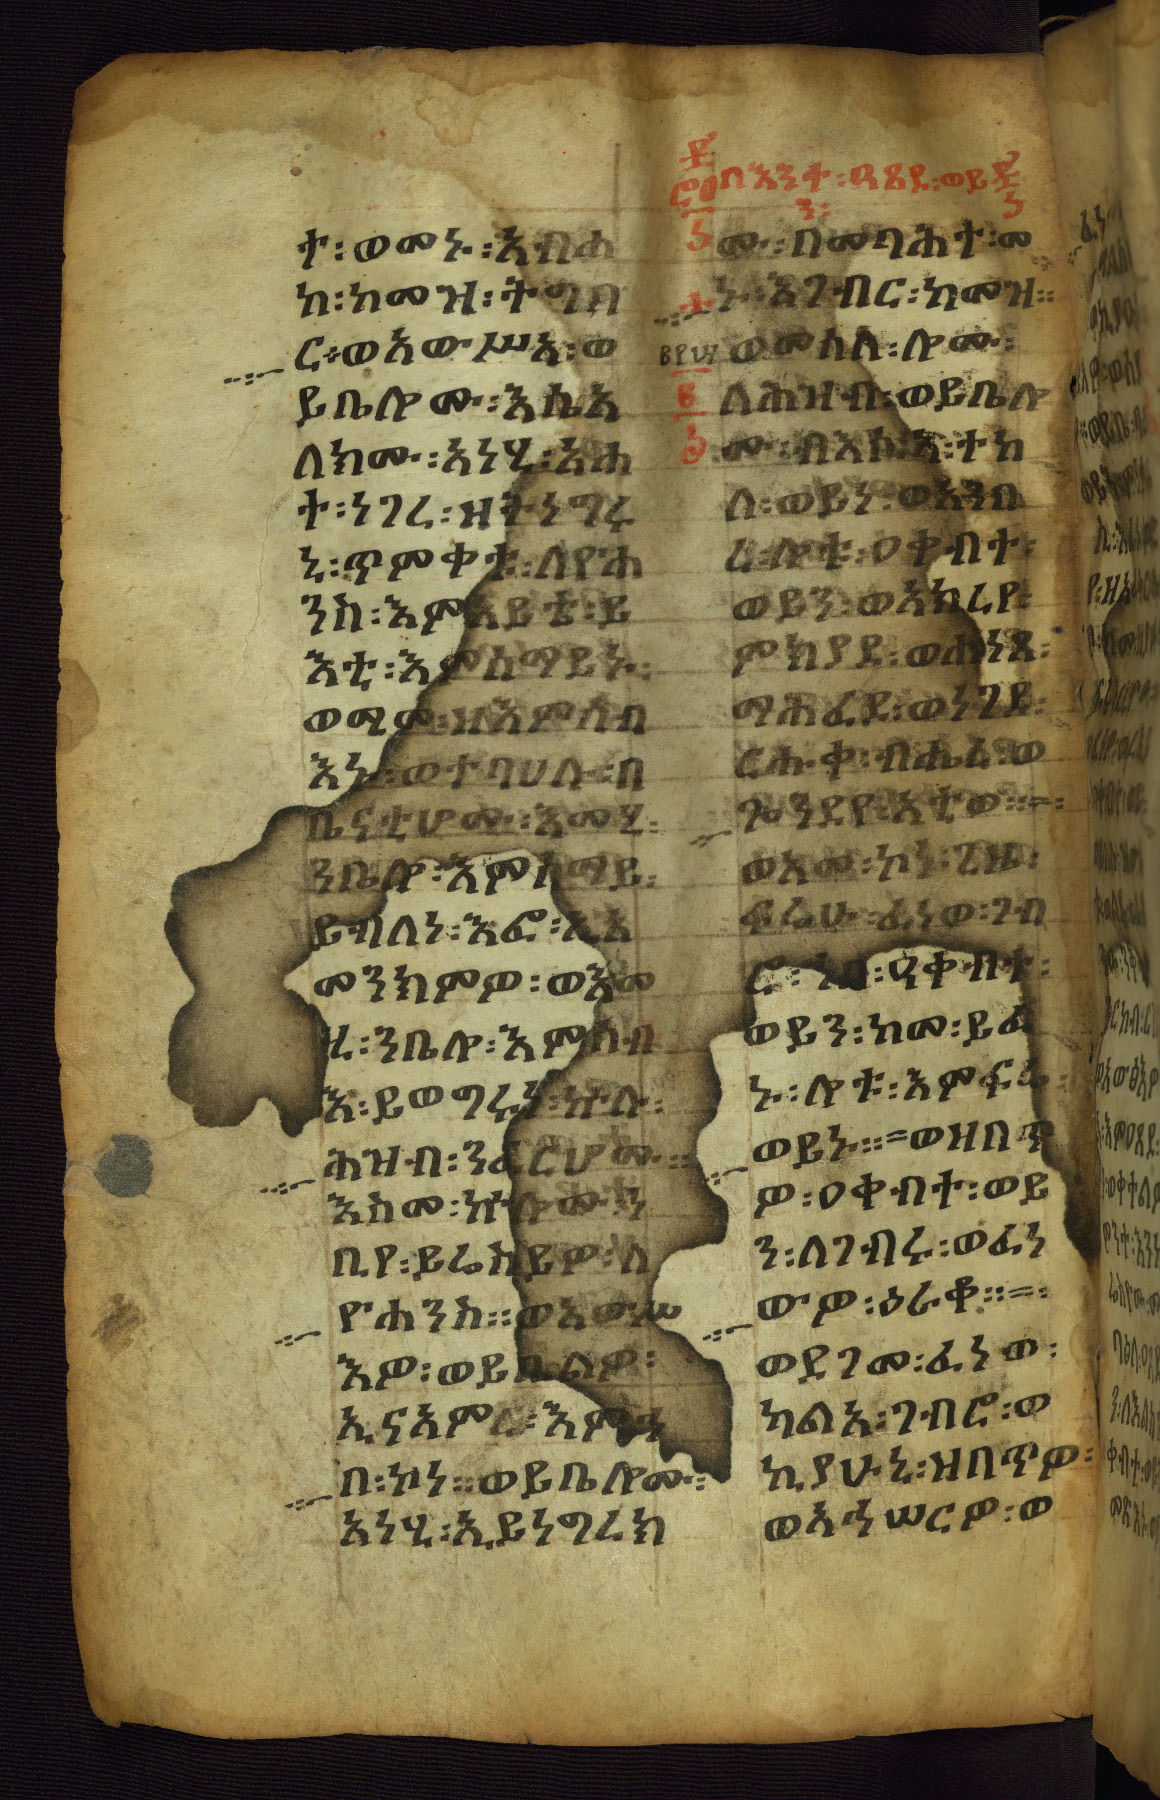 በእንተ፡ዓፀደ፡ወይ
ን፡
ተ፡ወመኑ፡አብሐ
ከ፡ከመዝ፡ትግበ
ር፡ወአውሥአ፡ወ
ይቤሎሙ፡እስአ
ለክሙ፡አነሂ፡አሐ
ተ፡ነገረ፡ዝትነግሩ
ኒ፡ጥምቀቱ፡ለዮሐ
ንስ፡እምአይቴ፡ይ
እቲ፡እምሰማይኑ፡
ወሚመ፡ዘእምሰብ
እኑ፡ወተባህሉ፡በ
ቤናቲሆሙ፡እመሂ፡
ንቤሎ፡እምሰማይ፡
ይብለነ፡እፎ፡ኢአ
መንክምዎ፡ወእመ
ሂ፡ንቤሎ፡እምሰብ
እ፡ይወግሩነ፡ኵሉ፡
ሕዝብ፡ንፈርሆሙ።
እስመ፡ኵሎሙ፡ነ
ቢየ፡ይሬስይዎ፡ለ
ዮሐንስ።ወአውሥ
እዎ፡ወይቤልዎ፡
ኢናአምር፡እምኀ
በ፡ኮነ።ወይቤሎሙ፡
አነሂ፡ኢይነግረክ
ሙ፡በመባሕተ፡መ
ኑ፡እገብር፡ከመዝ።
ወመሰለ፡ሎሙ፡
ለሕዝብ፡ወይቤሎ
ሙ፡ብእሲ፡ተከ
ለ፡ወይነ፡ወአንበ
ረ፡ሎቱ፡ዐቀብተ፡
ወይን፡ወአክረየ፡
ምክያደ፡ወሐነጸ፡
ማሕፈደ፡ወነገደ፡
ርሑቀ፡ብሔረ፡ወ
ጐንደየ፡አቲወ።
ወአመ፡ኮነ፡ጊዜ፡
ፍሬሁ፡ፈነወ፡ገብ
ሮ፡ኀበ፡ዓቀብተ፡
ወይን፡ከመ፡ይፈ
ኑ፡ሎቱ፡እምፍሬ፡
ወይኑ።ወዘበጥ
ዎ፡ዐቀብተ፡ወይ
ን፡ለገብሩ፡ወፈነ
ውዎ፡ዕራቆ።
ወደገመ፡ፈነወ፡
ካልአ፡ገብሮ፡ወ
ኪያሁኒ፡ዝበጥዎ፡
ወአኅሠርዎ፡ወ